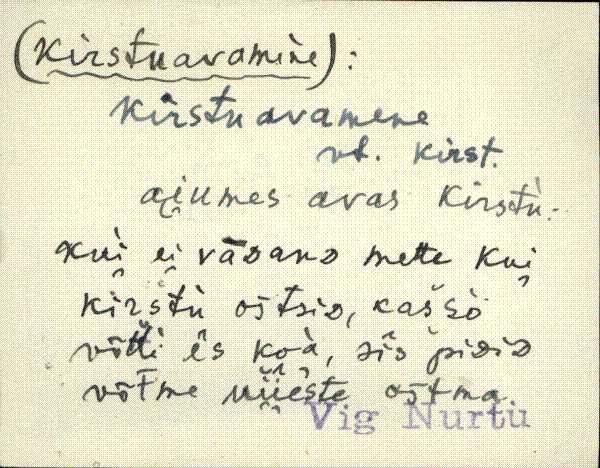 (Kirstuavamine):
Kirstuavamene
vt. kirst.
ajumes avas kirstù.
kui ei vāDanD mette kui
kirstù ostsiD, kas sò
võtti ês koà, sîs piDiD
võtme uuęste ostma.
Vig Nurtu